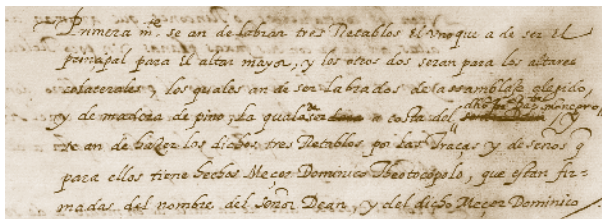 Primera mte. se an de labrar tres Retablos El Vno que a de ser El
prinçipal para El altar mayor, y los otros dos seran para los altares
colaterales, los quales an de ser labrados de assamblaje
y de madera de pino, La qual a costa del
se an de hazer los dichos tres Retablos por las Traças y deseños q
para ellos tiene hechos Meçer Dominico Theotocopolo, que estan fir-
madas del nombre del Señor Dean, y del dicho Meçer Dominico